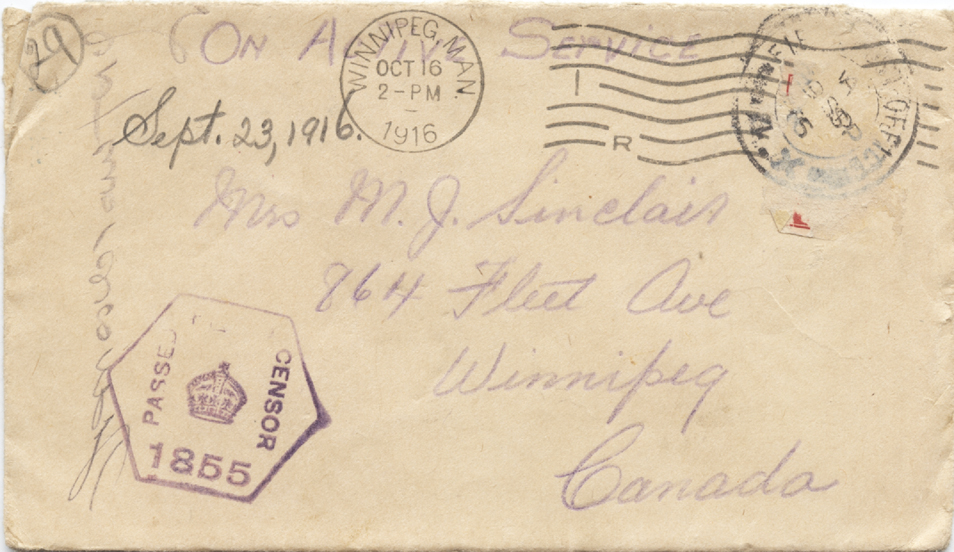 29
On Active Service
WINNIPEG, MAN.
OCT 16
2-PM
1916
R
Sept. 23, 1916.
Mrs M. J. Sinclair
864 Fleet Ave
Winnipeg
Canada
PASSED
CENSOR
1855